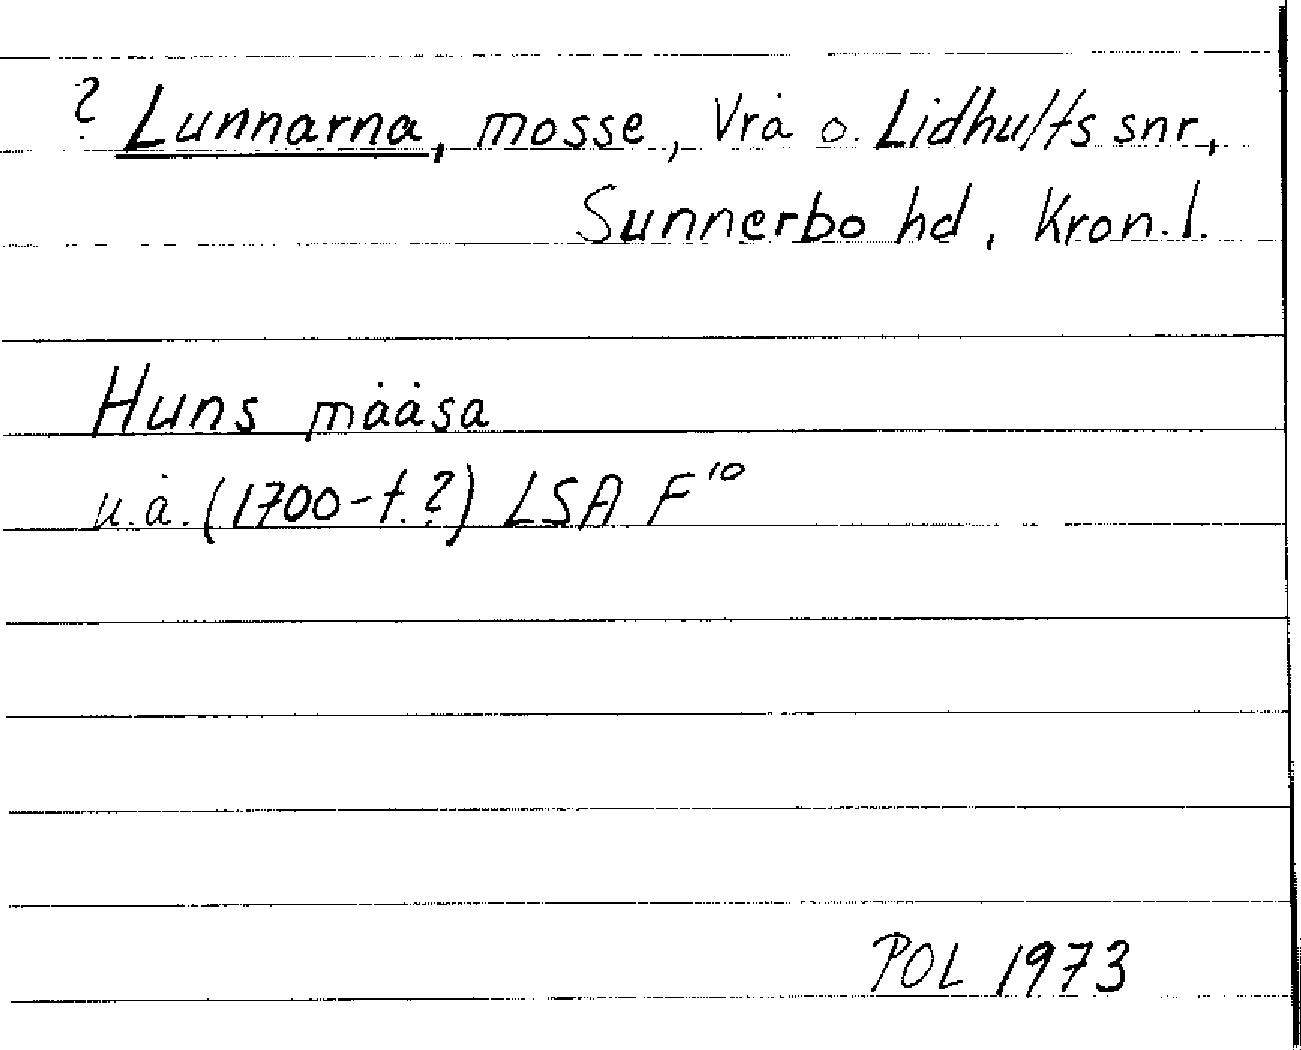 ? Lunnarna, mosse, Vrå o. Lidhults snr,
Sunnerbo hd, Kron. l.
Huns mååsa
u.å. (1700-t.?) LSA F¹⁰
POL 1973